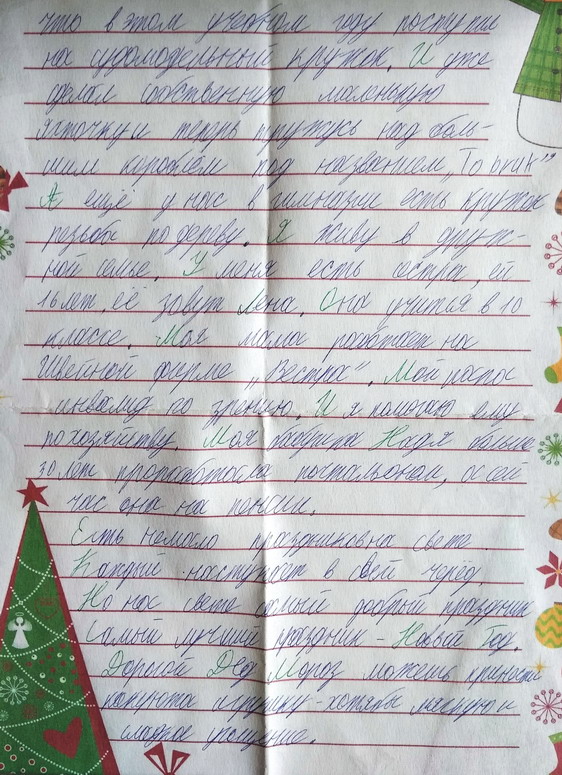 что в этом учебном году поступил
на судомодельный кружок. И уже
сделал собственную маленькую
яхточку и теперь тружусь над боль-
шим кораблём под названием „Tobruk”
А ещё у нас в гимназии есть кружок
резьбы по дереву. Я живу в друж-
ной семье. У меня есть сестра, ей
16 лет, её зовут Лена. Она учится в 10
классе. Моя мама работает на
Швейной фирме „Вестра”. Мой папа
инвалид по зрению. И я помогаю ему
по хозяйству. Моя бабушка Надя больше
30 лет проработала почтальоном, а сей
час она на пенсии.
Есть немало праздников на свете.
Каждый наступает в свой черёд.
Но на свете самый добрый праздник
Самый лучший праздник - Новый Год.
Дорогой Дед Мороз можешь принести
какую то игрушку - хотябы мягкую и
сладкое угощение.